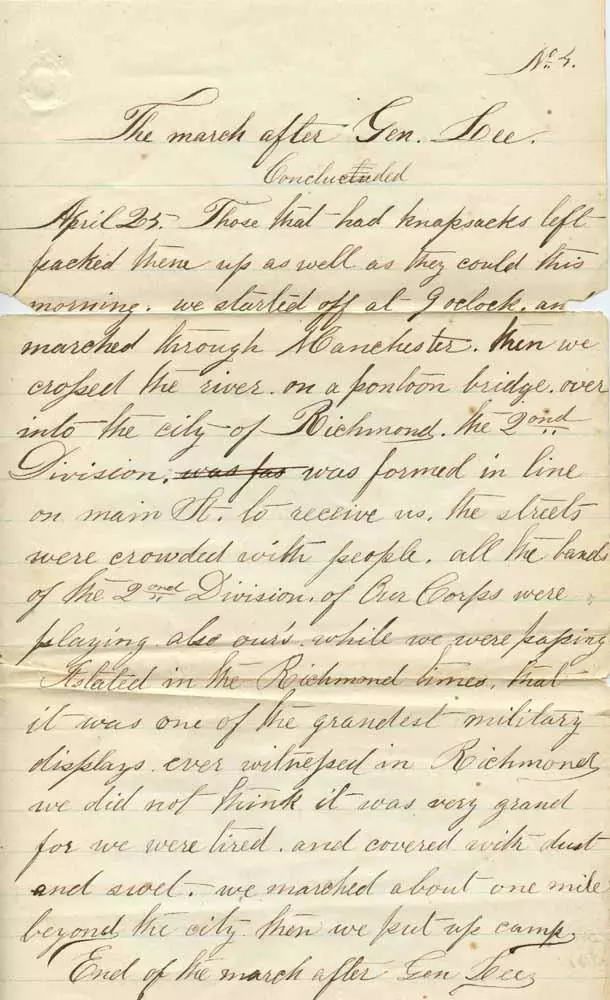 No. 5.
The march after Gen. Lee.
Concluded
April 25. Those that had knapsacks left
packed them up as well as they could this
morning. we started off at 9 oclock. an
marched through Manchester. then we
crossed the river. on a pontoon bridge. over
into the city of Richmond. the 2ond
Division. was fas was formed in line
on main St. to receive us. the streets
were crowded with people. all the bands
of the 2ond Division. of Our Corps were
playing also ours. while we were passing
It stated in the Richmond times. that
it was one of the grandest military
displays ever witnessed in Richmond
we did not think it was very grand
for we were tired. and covered with dust
and swet. we marched about one mile
beyond the city then we put up camp.
End of the march after Gen Lee